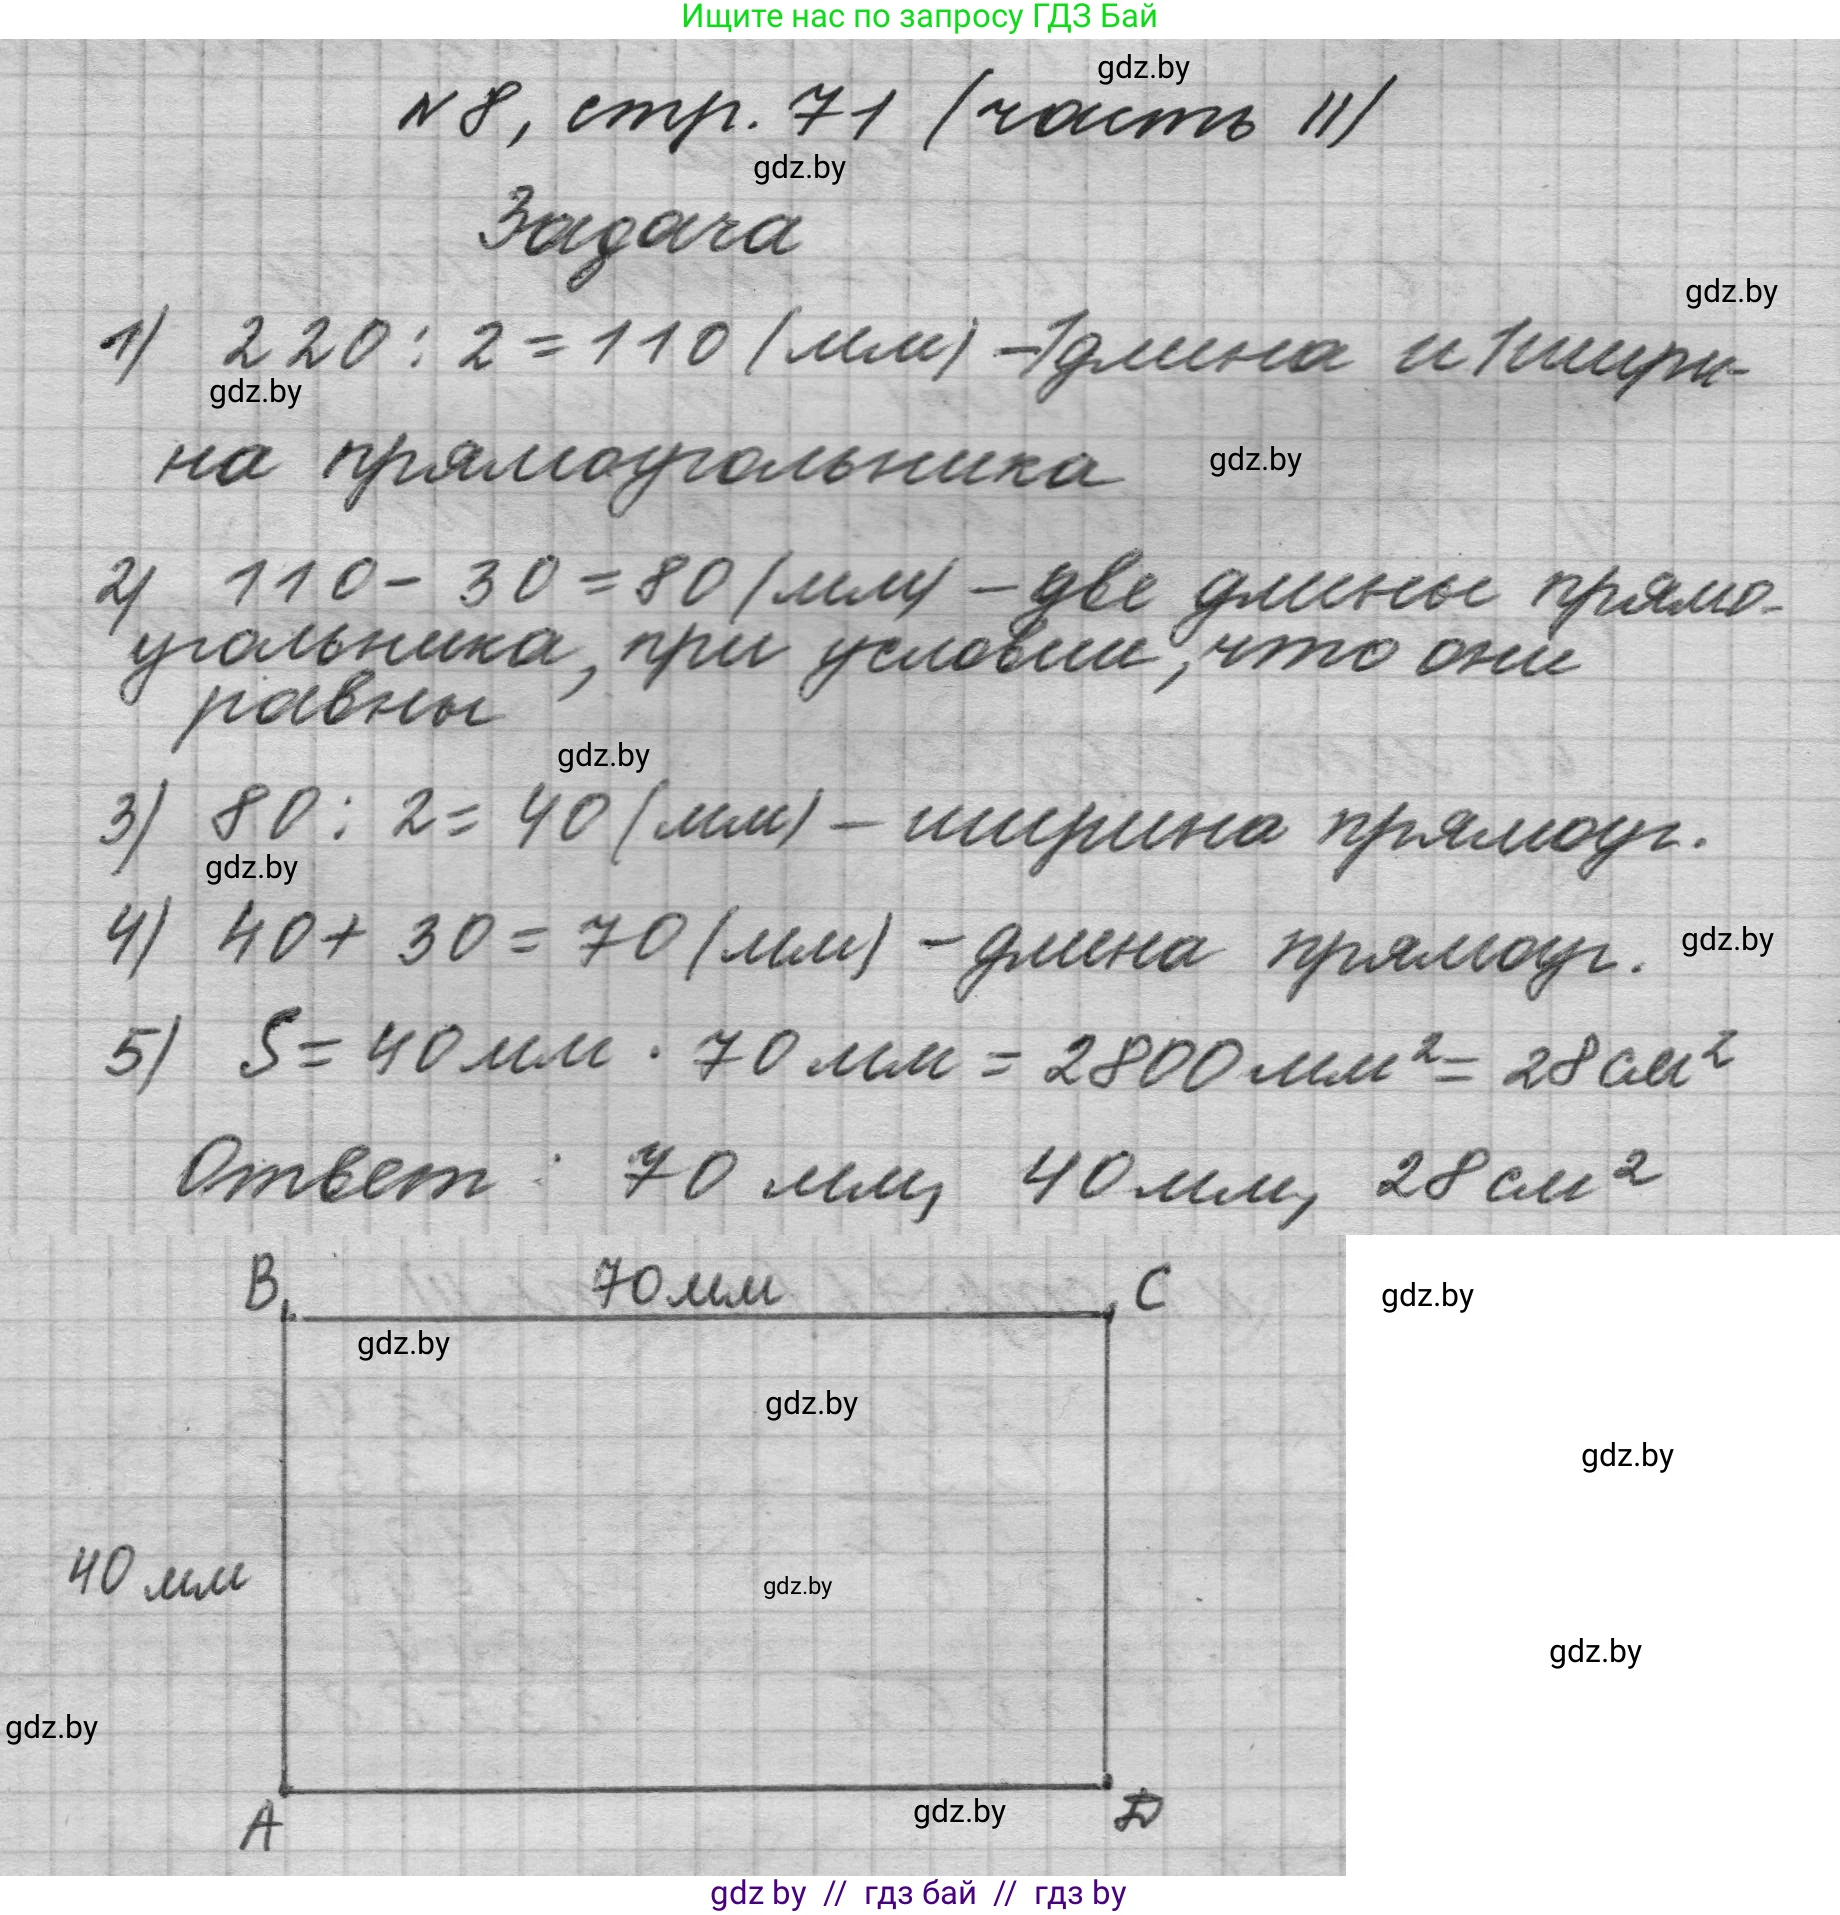 Ищите нас по запросу ГДЗ Бай
gdz.by
№8, стр. 71 (часть II)
gdz.by
Задача
gdz.by
1) 220 : 2 = 110 (мм) - 1 длина и 1 шири-
gdz.by
на прямоугольника
gdz.by
2) 110 - 30 = 80 (мм) - две длины прямо-
угольника, при условии, что они
равны
gdz.by
3) 80 : 2 = 40 (мм) - ширина прямоуг.
gdz.by
4) 40 + 30 = 70 (мм) - длина прямоуг.
gdz.by
5) S = 40 мм · 70 мм = 2800 мм² = 28 см²
Ответ : 70 мм, 40 мм, 28 см²
B 70 мм C
gdz.by
gdz.by
gdz.by
gdz.by
40 мм
gdz.by
gdz.by
gdz.by
gdz.by
A D
gdz by // гдз бай // гдз by